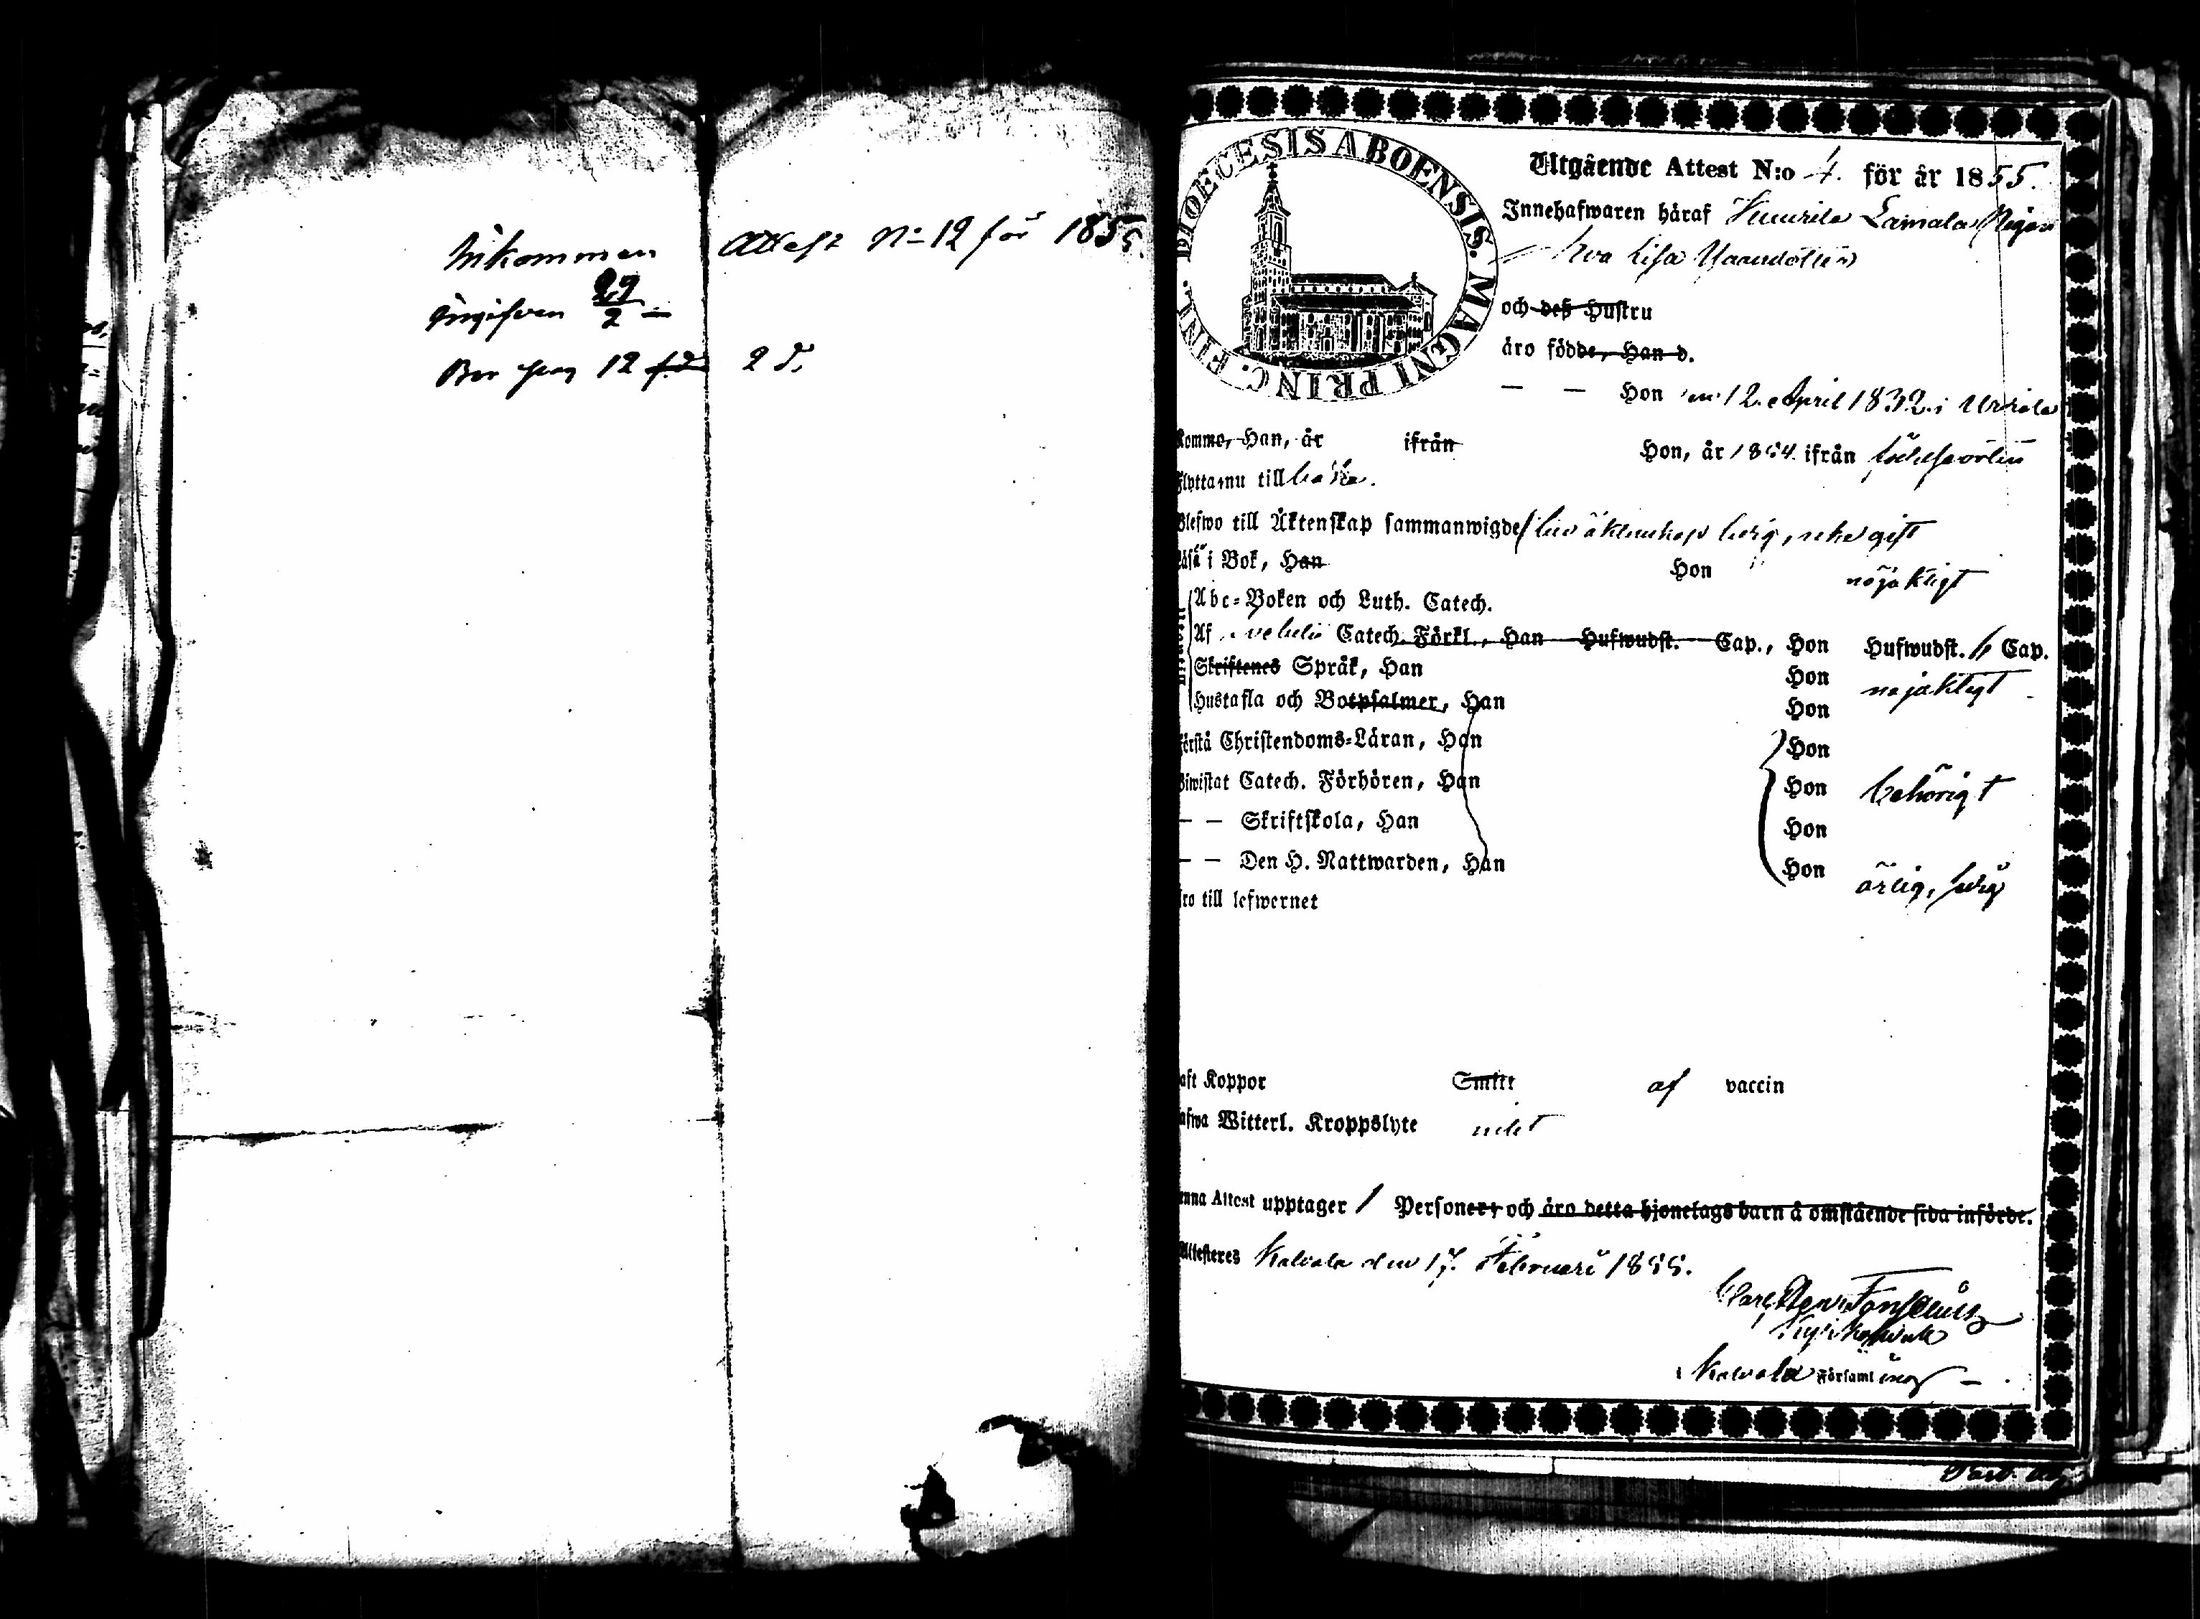 Inkommen Attest No 12 för 1855.
Ingifven 29/2
Ber pag 12 2 d.
DIOECESIS ABOENSIS. MAGNI PRINC. FINL.
Utgående Attest N:o 4. för år 1855.
Innehafwaren häraf Lamala Pigan
Eva Lisa
och deß Hustru
äro födde, Han d.
— — Hon den 12 April 1832 i Urdiala
Komme, Han, år ifrån Hon, år 1854 ifrån
Flytta nu till baka.
Blefwo till Äktenskap sammanwigde (till äktenskap ledig, icke gift
Läsa i Bok, Han Hon nöjaktigt
Abc-Boken och Luth. Catech.
Af Catech. Förkl., Han Hufwudst. Cap., Hon Hufwudst. 6 Cap.
Skriftenes Språk, Han Hon nöjaktigt
Hustafla och Botpsalmer, Han Hon
Förstå Christendoms-Läran, Han Hon
Biwistat Catech. Förhören, Han Hon behörigt
— — Skriftskola, Han Hon
— — Den H. Nattwarden, Han Hon
äro till lefwernet ärlig, ledig
haft Koppor Smitt af vaccin
hafwa Witterl. Kroppslyte intet
enna Attest upptager 1 Personer, och äro detta hjonelags barn å omstående sida införde.
Attesteres Kalvola den 17. Februari 1855.
Carl
Kyrkoherde
i Kalvola Församling